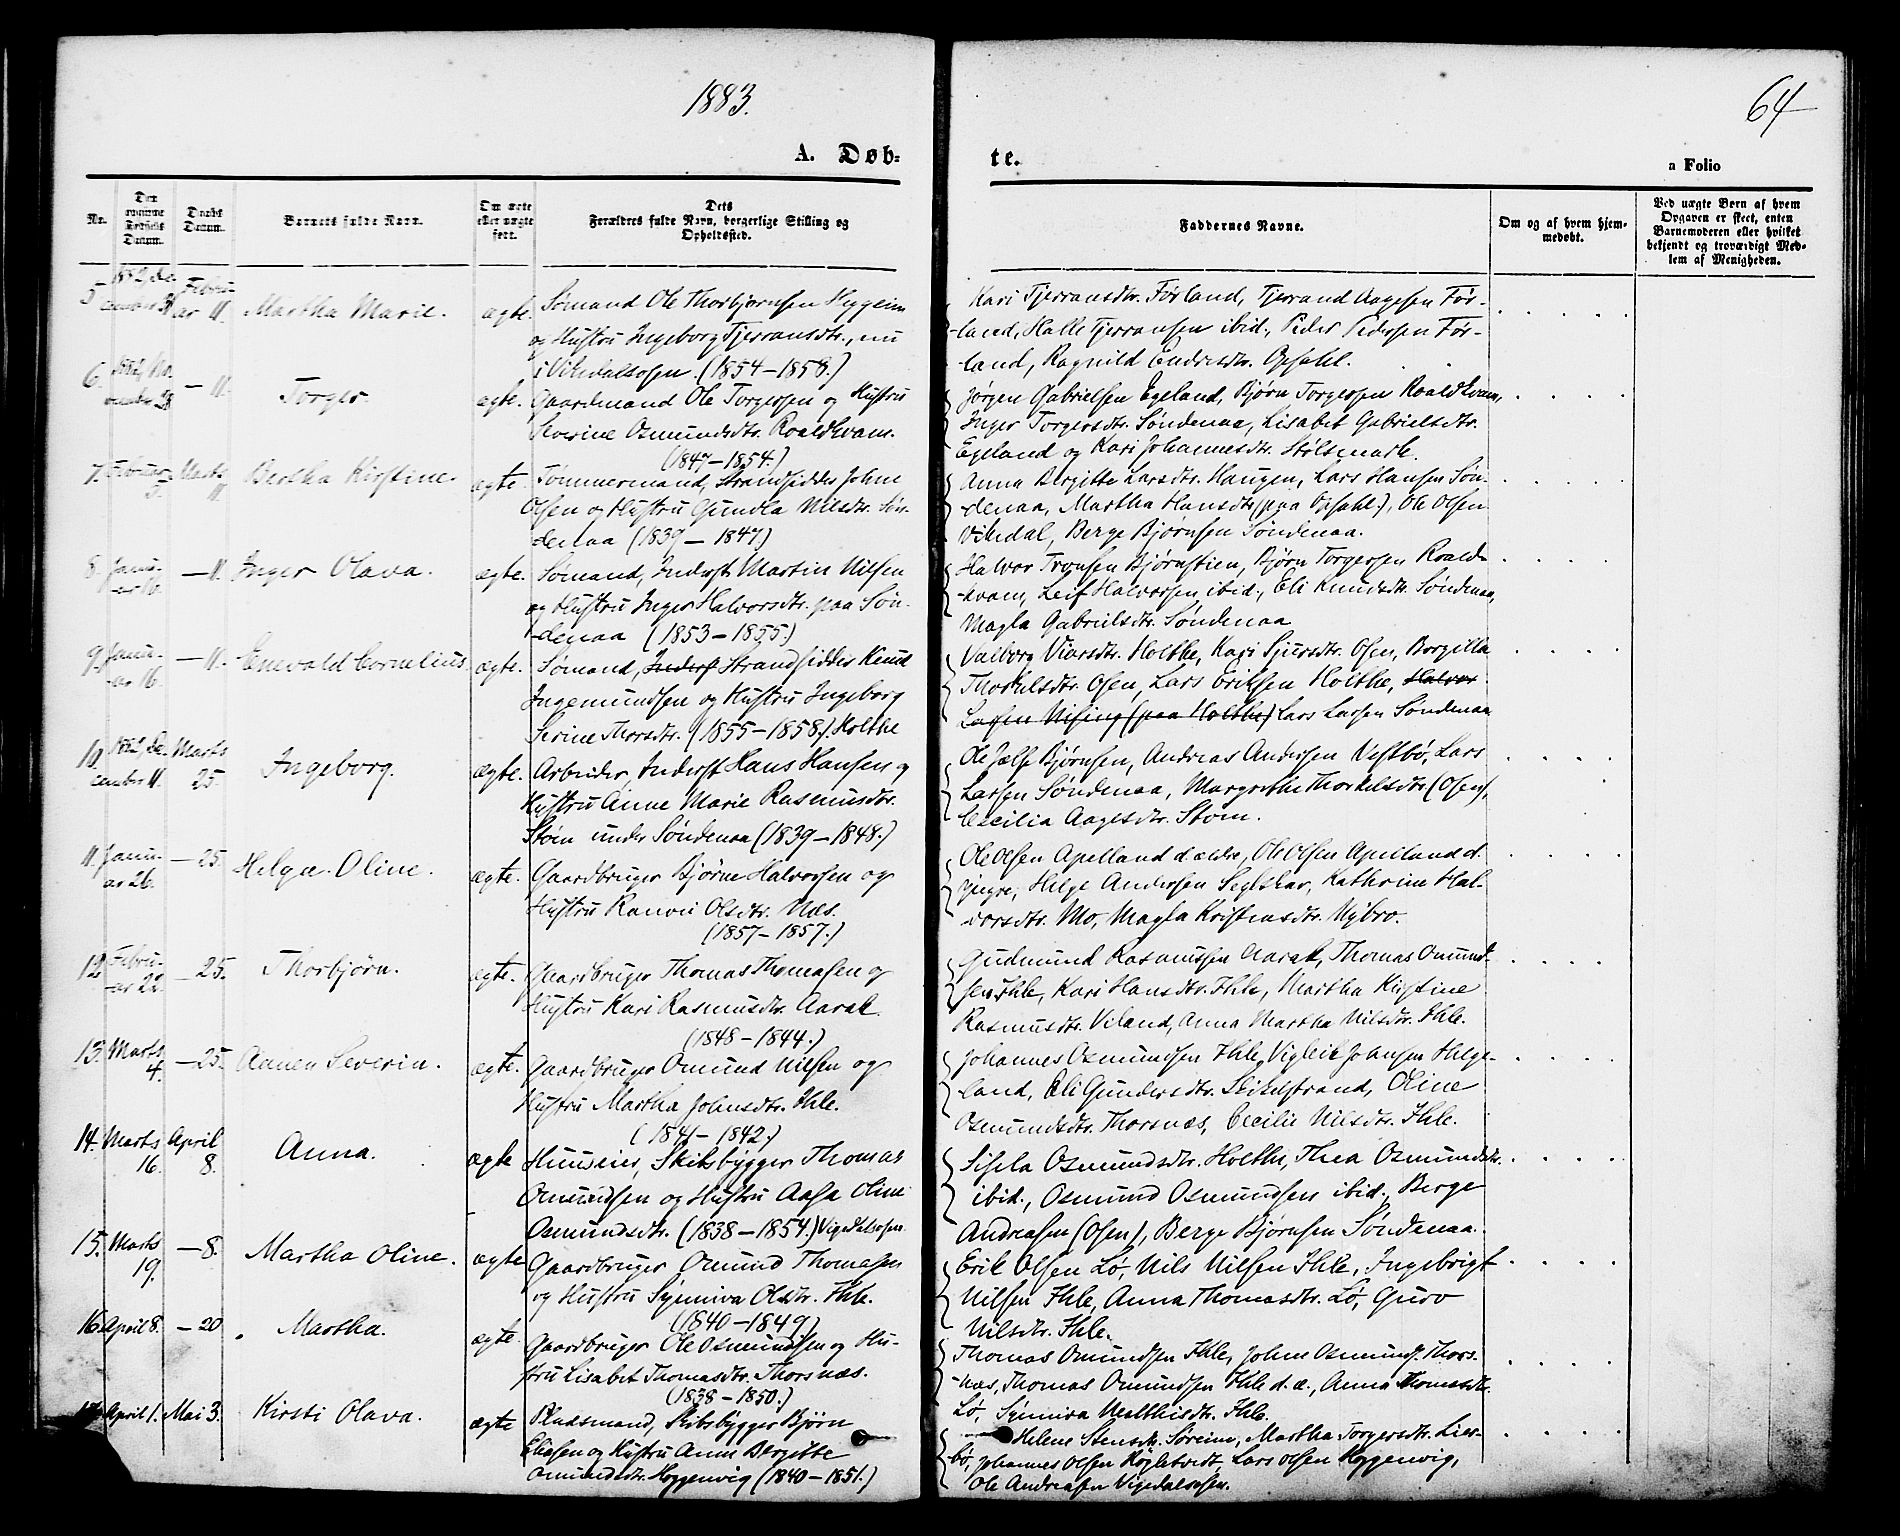 1883.
64
A. Døb-
te.
a Folio
No.
Den
Fødsels
Datum.
Daabs
Datum.
Barnets fulde Navn.
Om ægte
eller uægte
født.
Dets
Forældres fulde Navn, borgerlige Stilling og
Opholdssted.
Faddernes Navne.
Om og af hvem hjem-
medøbt.
Ved uægte Børn af hvem
Opgaven er skeet, enten
Barnemoderen eller hvilket
bekjendt og troværdigt Med-
lem af Menigheden.
5. 1882, De- cember 31. Febru- ar 11. Martha Marie. ægte.
Sømand Ole Thorbjørnsen
og Hustru Ingeborg Tjerransdtr., nu
i Vikedalsosen. (1854-1858.)
Kari Tjerransdtr. Førland, Tjerrand Aagesen Før-
land, Halle Tjerransen ibid., Peder Pedersen Før-
land, Ragnild Endresdtr. Opsahl.
6. 1882, No- vember 28. - 11. Torger ægte.
Gaardmand Ole Torgersen og Hustru
Severine Osmundsdtr. Roaldkvam.
(1847-1854.)
Jørgen Gabrielsen Egeland, Bjørn Torgersen Roaldkvam,
Inger Torgersdtr. Søndenaa, Lisabet Gabrielsdtr.
Egeland og Kari Johannesdtr. Stølsmark.
7. Februar 5. Marts 11. Bertha Kirstine. ægte.
Tømmermand, Strandsidder John
Olsen og Hustru Gunda Nilsdtr. Søn-
denaa (1839-1847.)
Anna Birgitte Larsdtr. Haugen, Lars Hansen Søn-
denaa, Martha Hansdtr. (paa Opsahl.), Ole Olsen
Vikedal, Berge Bjørnsen Søndenaa.
8. Janu- ar 10. - 11. Inger Olava. ægte.
Sømand, Inderst Martin Nilsen
og Hustru Inger Halvorsdtr. paa Søn-
denaa (1853-1855.)
Halvor Tronsen Bjørnstien, Bjørn Torgersen Roald-
kvam, Leif Halvorsen ibid., Eli Knudsdtr. Søndenaa,
Magla Gabrielsdtr. Søndenaa
9. Janu- ar 16. - 11. Enevald Cornelius. ægte.
Sømand, Inderst Strandsidder Knud
Ingemundsen og Hustru Ingeborg
Serine Thorsdtr. (1855-1858.) Holthe
Valborg Viarsdtr. Holthe, Kari Sjursdtr. Osen, Borgilla
Thorkelsdtr. Osen, Lars Eriksen Holthe, Halvor
(paa Holthe) Lars Larsen Søndenaa
10. 1882, De- cember 11. Marts 25. Ingeborg. ægte.
Arbeider, Inderst Hans Hansen og
Hustru Anne Marie Rasmusdtr.
Støm under Søndenaa (1839-1848.)
Ole Jalfs Bjørnsen, Andreas Andersen Vestbø, Lars
Larsen Søndenaa, Margrethe Thorkelsdtr. (Osen),
Cecilia Aagesdtr. Støm.
11. Janu- ar 26. - 25. Helga Oline. ægte.
Gaardbruger Bjørne Halvorsen og
Hustru Ranvei Olsdtr. Næs.
(1857-1857.)
Ole Olsen Apelland d. ældre, Ole Olsen Apelland d.
yngre, Helge Andersen Seglskar, Kathrine Hal-
vorsdtr. Mo, Magla Kristensdtr. Nybro.
12. Febru- ar 22. - 25. Thorbjørn. ægte.
Gaardbruger Thomas Thomasen og
Hustru Kari Rasmusdtr. Aarak.
(1848-1844.)
Gudmund Rasmussen Aarak, Thomas Omund-
sen Ihle, Kari Hansdtr. Ihle, Martha Kirstine
Rasmusdtr. Viland, Anna Martha Nilsdtr. Ihle.
13. Marts 4. - 25. Aanen Severin. ægte.
Gaardbruger Omund Nilsen og
Hustru Martha Johnsdtr. Ihle.
(1841-1842.)
Johannes Osmundsen Ihle, Vigleik Johnsen Helge-
land, Eli Gundersdtr. Slikelstrand, Oline
Osmundsdtr. Thorsnæs, Cecilie Nilsdtr. Ihle.
14. Marts 16. April 8. Anna. ægte
Huuseier, Skibsbygger Thomas
Omundsen og Hustru Aasa Oline
Osmundsdtr. (1838-1854.) Vigedalsosen.
Sisela Osmundsdtr. Holthe, Thea Osmundsdtr.
ibid., Osmund Osmundsen ibid., Berge
Andreasen (Osen), Berge Bjørnsen Søndenaa.
15. Marts 19. - 8. Martha Oline. ægte
Gaardbruger Omund Thomasen
og Hustru Synniva Olsdtr. Ihle.
(1840-1849)
Erik Olsen Lø, Nils Nilsen Ihle, Ingebrigt
Nilsen Ihle, Anna Thomasdtr. Lø, Guro
Nilsdtr. Ihle.
16. April 8. - 20. Martha. ægte.
Gaardbruger Ole Osmundsen og Hu-
stru Lisabet Thomasdtr. Thorsnæs.
(1838-1850.)
Thomas Omundsen Ihle, John Osmunds. Thors-
næs, Thomas Omundsen Ihle d. æ., Anna Thomasdtr.
Lø, Synniva Ihle.
17. April 1. Mai 3. Kirsti Olava. ægte
Pladsmand, Skibsbygger Bjørn
Eliasen og Hustru Anne Bergitte
Omundsdtr. Hoggenvig (1840-1851.)
Helene Søreim, Martha Torgersdtr. Lies-
bø, Johannes Olsen Lars Olsen Hoggenvig,
Ole Andreasen Vigedalsosen.